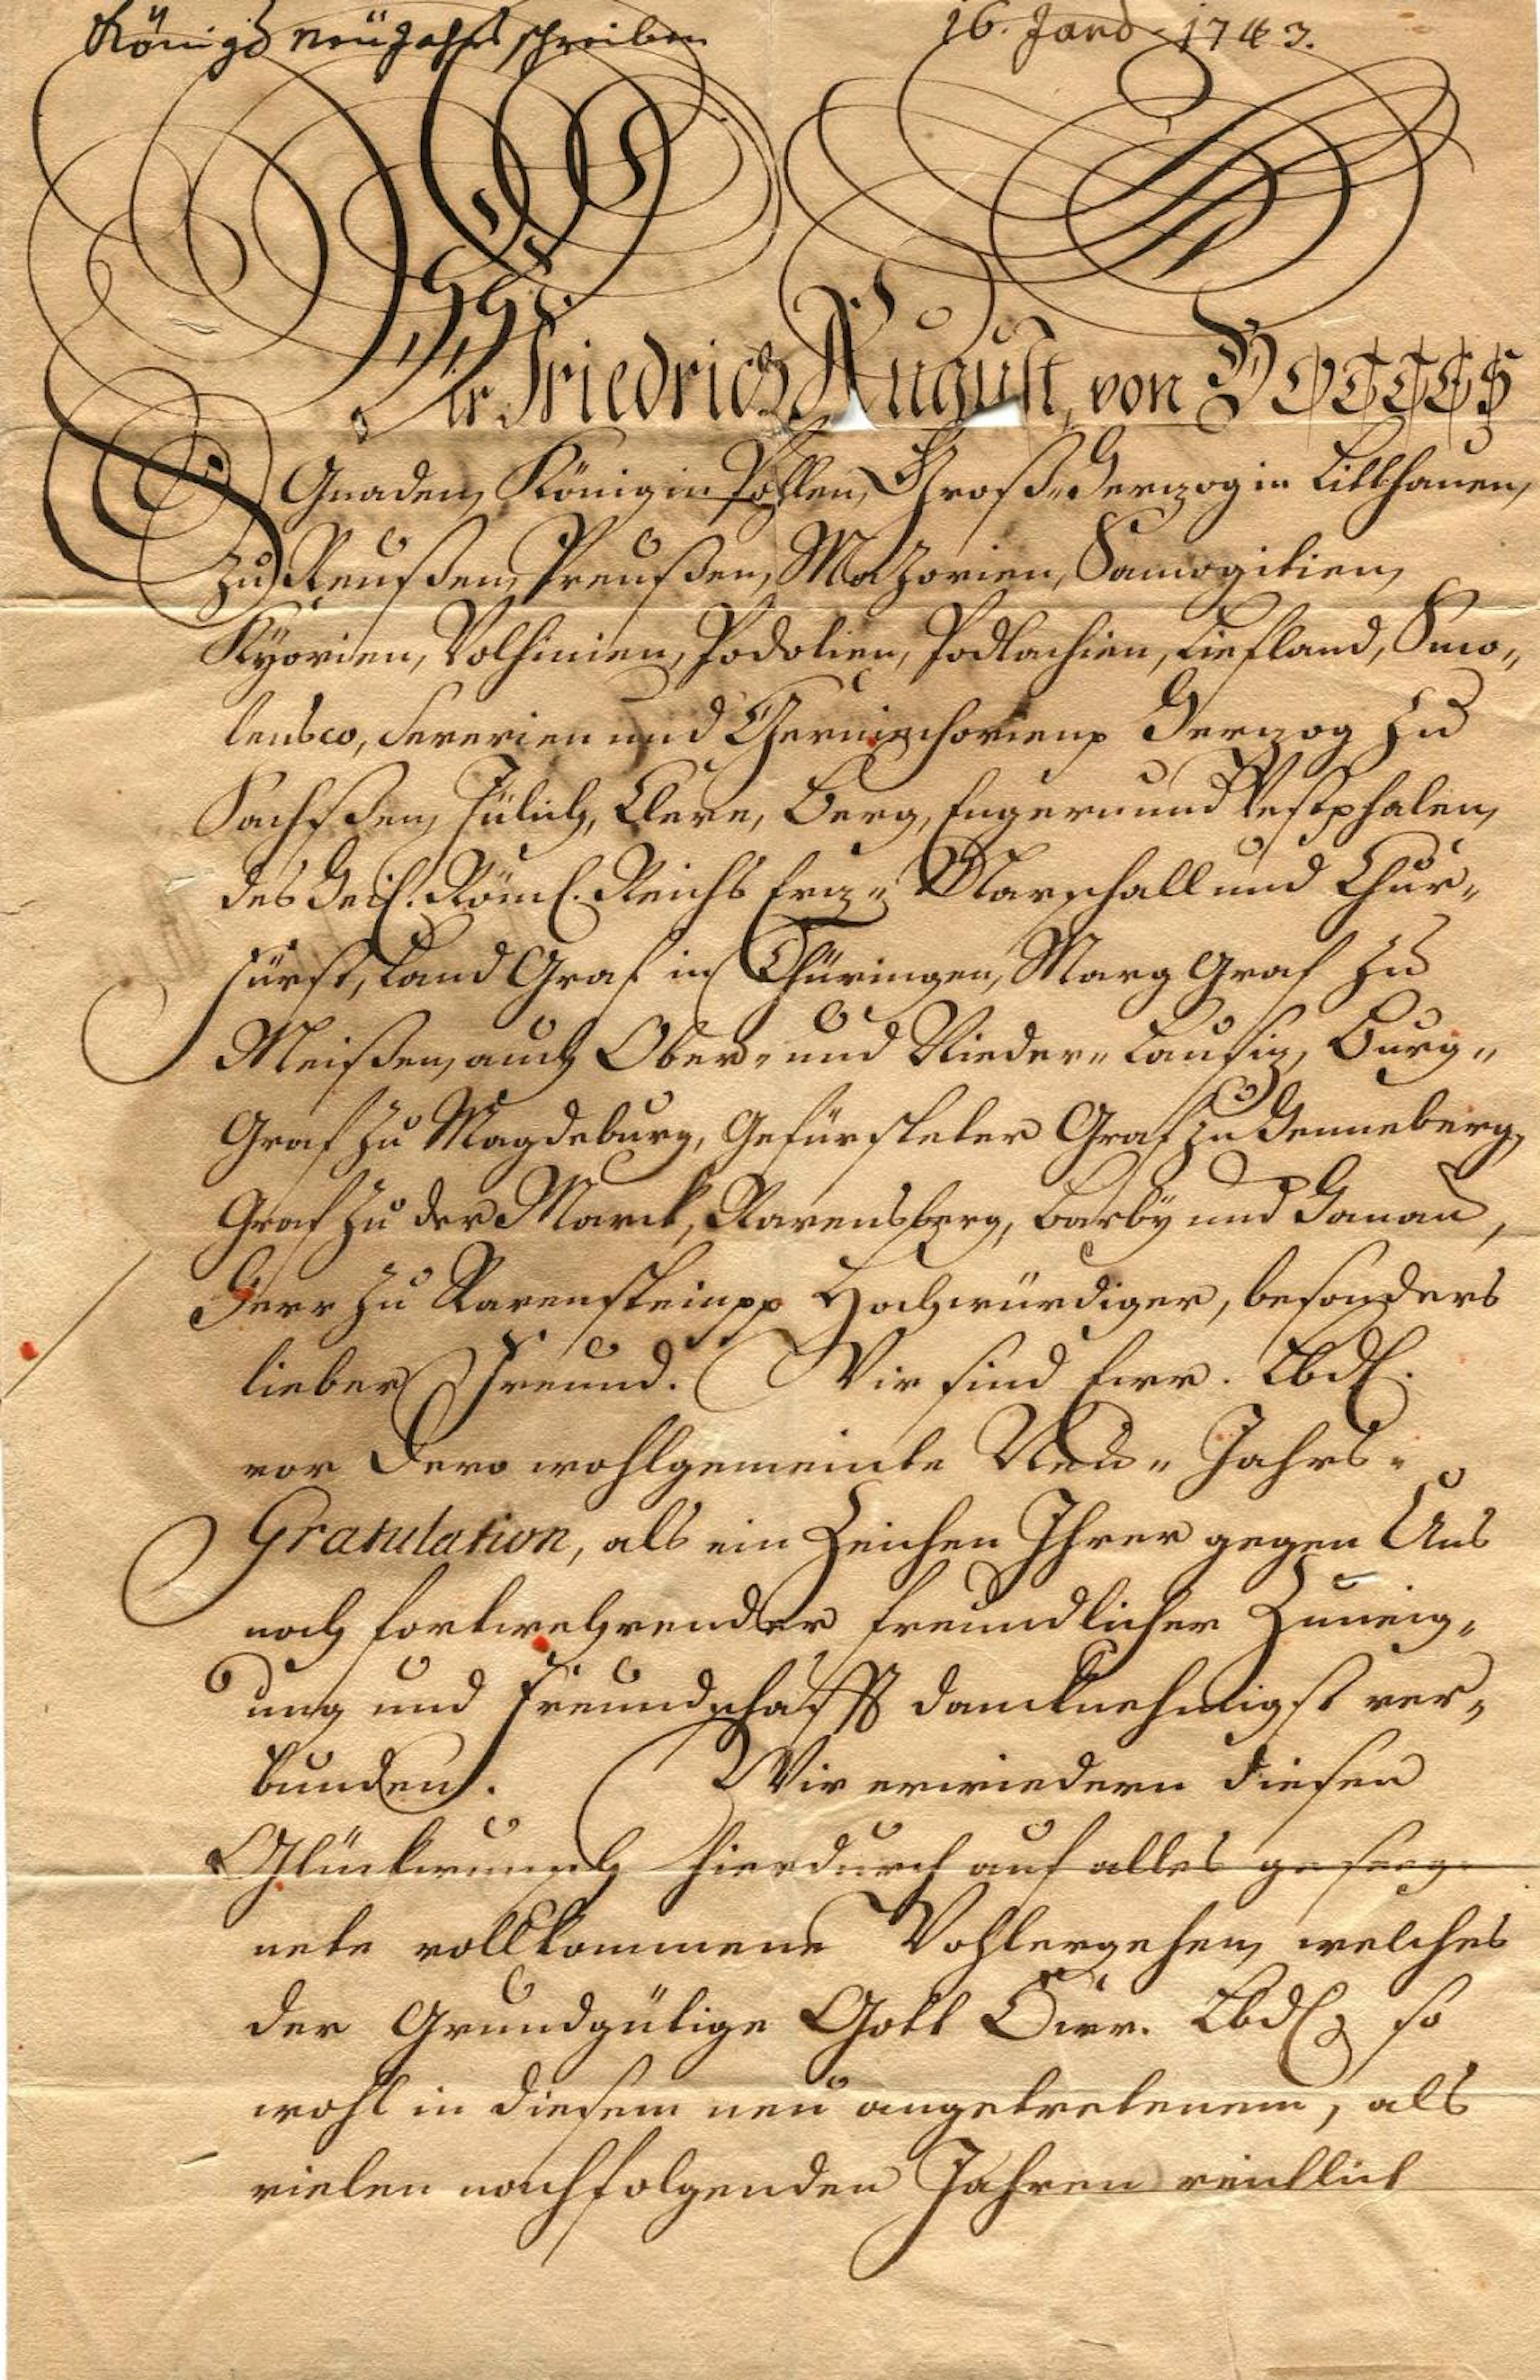 Königs neüjahrs schreiben 16. Janr. 1743.
Wir Friedrich August, von GOTTES
Gnaden, König in Pohlen, Groß-Herzog in Litthauen,
zu Reußen, Preußen, Mazovien, Samogitien,
Kyovien, Volhinien, Podolien, Podlachien, Liefland, Smo-
lensco, Severien und Czerniechovienp Herzog zu
Sachßen, Jülich, Cleve, Berg, Engern und Westphalen,
des Heil. Röm. Reichs Erz-Marschall und Chur-
fürst, Land Graf in Thüringen, Marg Graf zu
Meißen, auch Ober- und Nieder-Lausiz, Burg-
Graf zu Magdeburg, Gefürsteter Graf zu Henneberg,
Graf zu der Marck, Ravensberg, Barby und Hanau,
Herr zu Ravensteinpp Hochwürdiger, besonders
lieber Freund. Wir sind Ewr. Lbd.
vor Dero wohlgemeinte Neu-Jahrs-
Gratulation, als ein Zeichen Ihrer gegen Uns
noch fortwehrender freundlicher Zuneig-
ung und Freundschafft dancknehmigst ver-
bunden. Wir erwiedern diesen
Glückwunsch hierdurch auf alles geseeg-
nete vollkommene Wohlergehen, welches
der Grundgütige Gott Ewr. Lbd. so
wohl in diesem neu angetretenem, als
vielen nachfolgenden Jahren reichlich